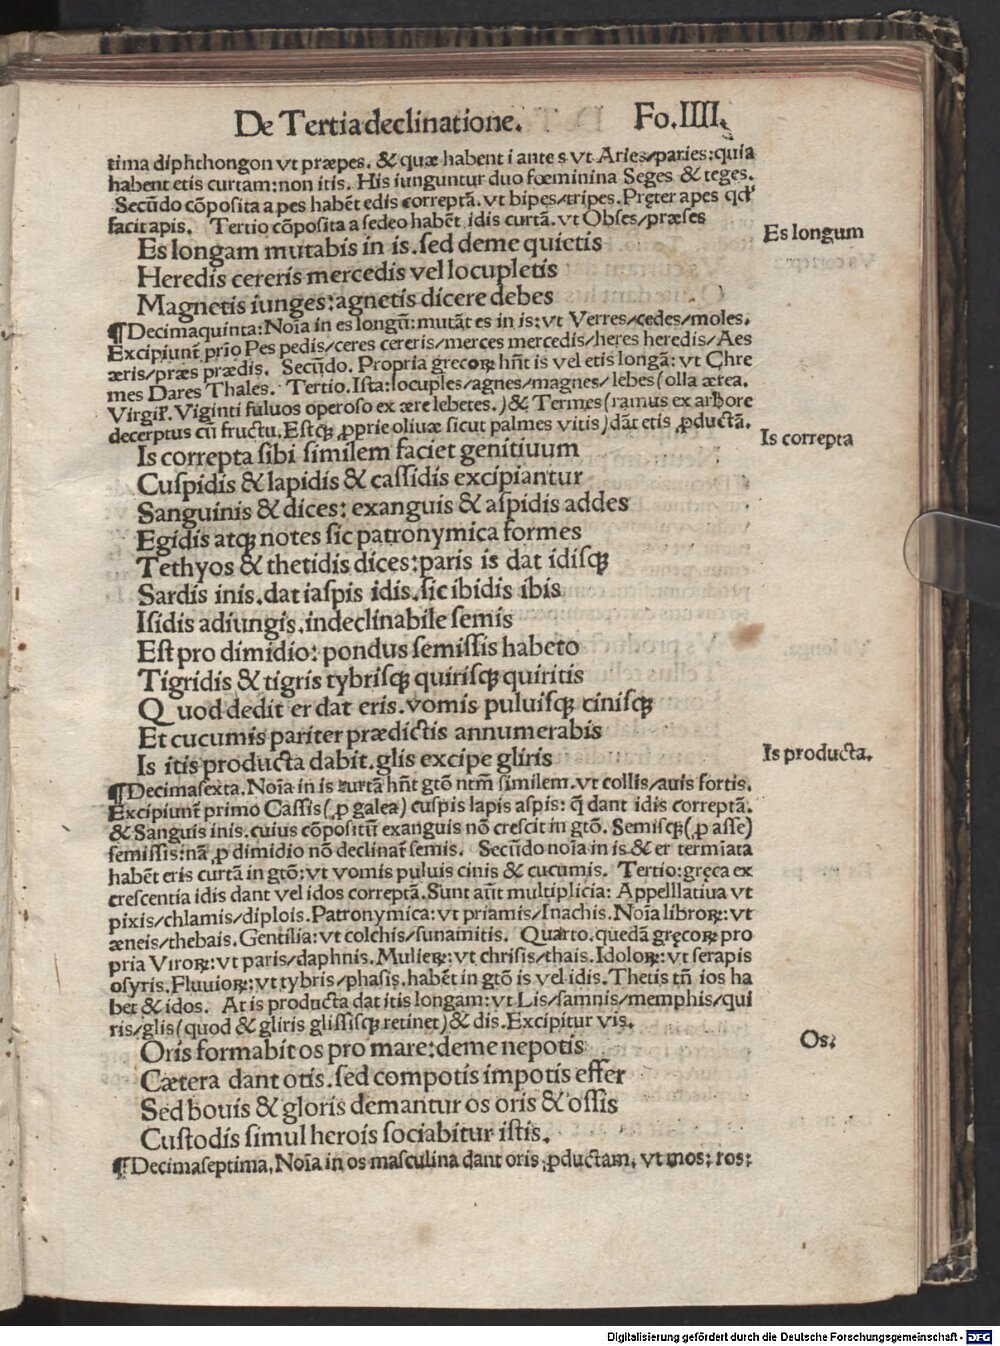 De Tertia declinatione. Fo. IIII.
tima diphthongon vt præpes. & quæ habent i ante s vt Aries/paries: quia
habent etis curtam: non itis. His iunguntur duo fœminina Seges & teges.
Secũdo cõposita a pes habẽt edis correptã. vt bipes/tripes. Pręter apes qđ
facit apis. Tertio cõposita a sedeo habẽt idis curtã. vt Obses/præses
Es longam mutabis in is. sed deme quietis
Es longum
Heredis cereris mercedis vel locupletis
Magnetis iunges: agnetis dicere debes
¶ Decimaquinta: Noĩa in es longũ: mutãt es in is: vt Verres/cedes/moles.
Excipiunt᷑ prĩo Pes pedis/ceres cereris/merces mercedis/heres heredis/Aes
æris/præs prædis. Secũdo. Propria grecoꝝ hñt is vel etis longã: vt Chre
mes Dares Thales. Tertio. Ista: locuples/agnes/magnes/lebes (olla ærea.
Virgiƚ. Viginti fuluos operoso ex ære lebetes.) & Termes (ramus ex arbore
decerptus cũ fructu. Estqꝫ ꝓprie oliuæ sicut palmes vitis) dãt etis ꝓductã.
Is correpta sibi similem faciet genitiuum
Is correpta
Cuspidis & lapidis & cassidis excipiantur
Sanguinis & dices: exanguis & aspidis addes
Egidis atqꝫ notes sic patronymica formes
Tethyos & thetidis dices: paris is dat idisqꝫ
Sardis inis. dat iaspis idis. sic ibidis ibis
Isidis adiungis. indeclinabile semis
Est pro dimidio: pondus semissis habeto
Tigridis & tigris tybrisqꝫ quirisqꝫ quiritis
Quod dedit er dat eris. vomis puluisqꝫ cinisqꝫ
Et cucumis pariter prædictis annumerabis
Is itis producta dabit. glis excipe gliris
Is producta.
¶ Decimasexta. Noĩa in is curtã hñt gtõ ntm̃ similem. vt collis/auis fortis.
Excipiunt᷑ primo Cassis (ꝓ galea) cuspis lapis aspis: q̃ dant idis correptã.
& Sanguis inis. cuius cõpositũ exanguis nõ crescit in gtõ. Semisqꝫ (ꝓ asse)
semissis: nã ꝓ dimidio nõ declinat᷑ semis. Secũdo noĩa in is & er termĩata
habẽt eris curtã in gtõ: vt vomis puluis cinis & cucumis. Tertio: gręca ex
crescentia idis dant vel idos correptã. Sunt aũt multiplicia: Appelllatiua vt
pixis/chlamis/diplois. Patronymica: vt priamis/Inachis. Noĩa libroꝝ: vt
æneis/thebais. Gentilia: vt colchis/sunamitis. Quarto. quedã gręcoꝝ pro
pria Viroꝝ: vt paris/daphnis. Mulieꝝ: vt chrisis/thais. Idoloꝝ: vt serapis
osyris. Fluuioꝝ: vt tybris/phasis. habẽt in gtõ is vel idis. Thetis tñ ios ha
bet & idos. At is producta dat itis longam: vt Lis/samnis/memphis/qui
ris/glis (quod & gliris glissisqꝫ retinet) & dis. Excipitur vis.
Oris formabit os pro mare: deme nepotis
Os:
Cætera dant otis. sed compotis impotis effer
Sed bouis & gloris demantur os oris & ossis
Custodis simul herois sociabitur istis.
¶ Decimaseptima. Noĩa in os masculina dant oris ꝓductam. vt mos: ros:
Digitalisierung gefördert durch die Deutsche Forschungsgemeinschaft - DFG